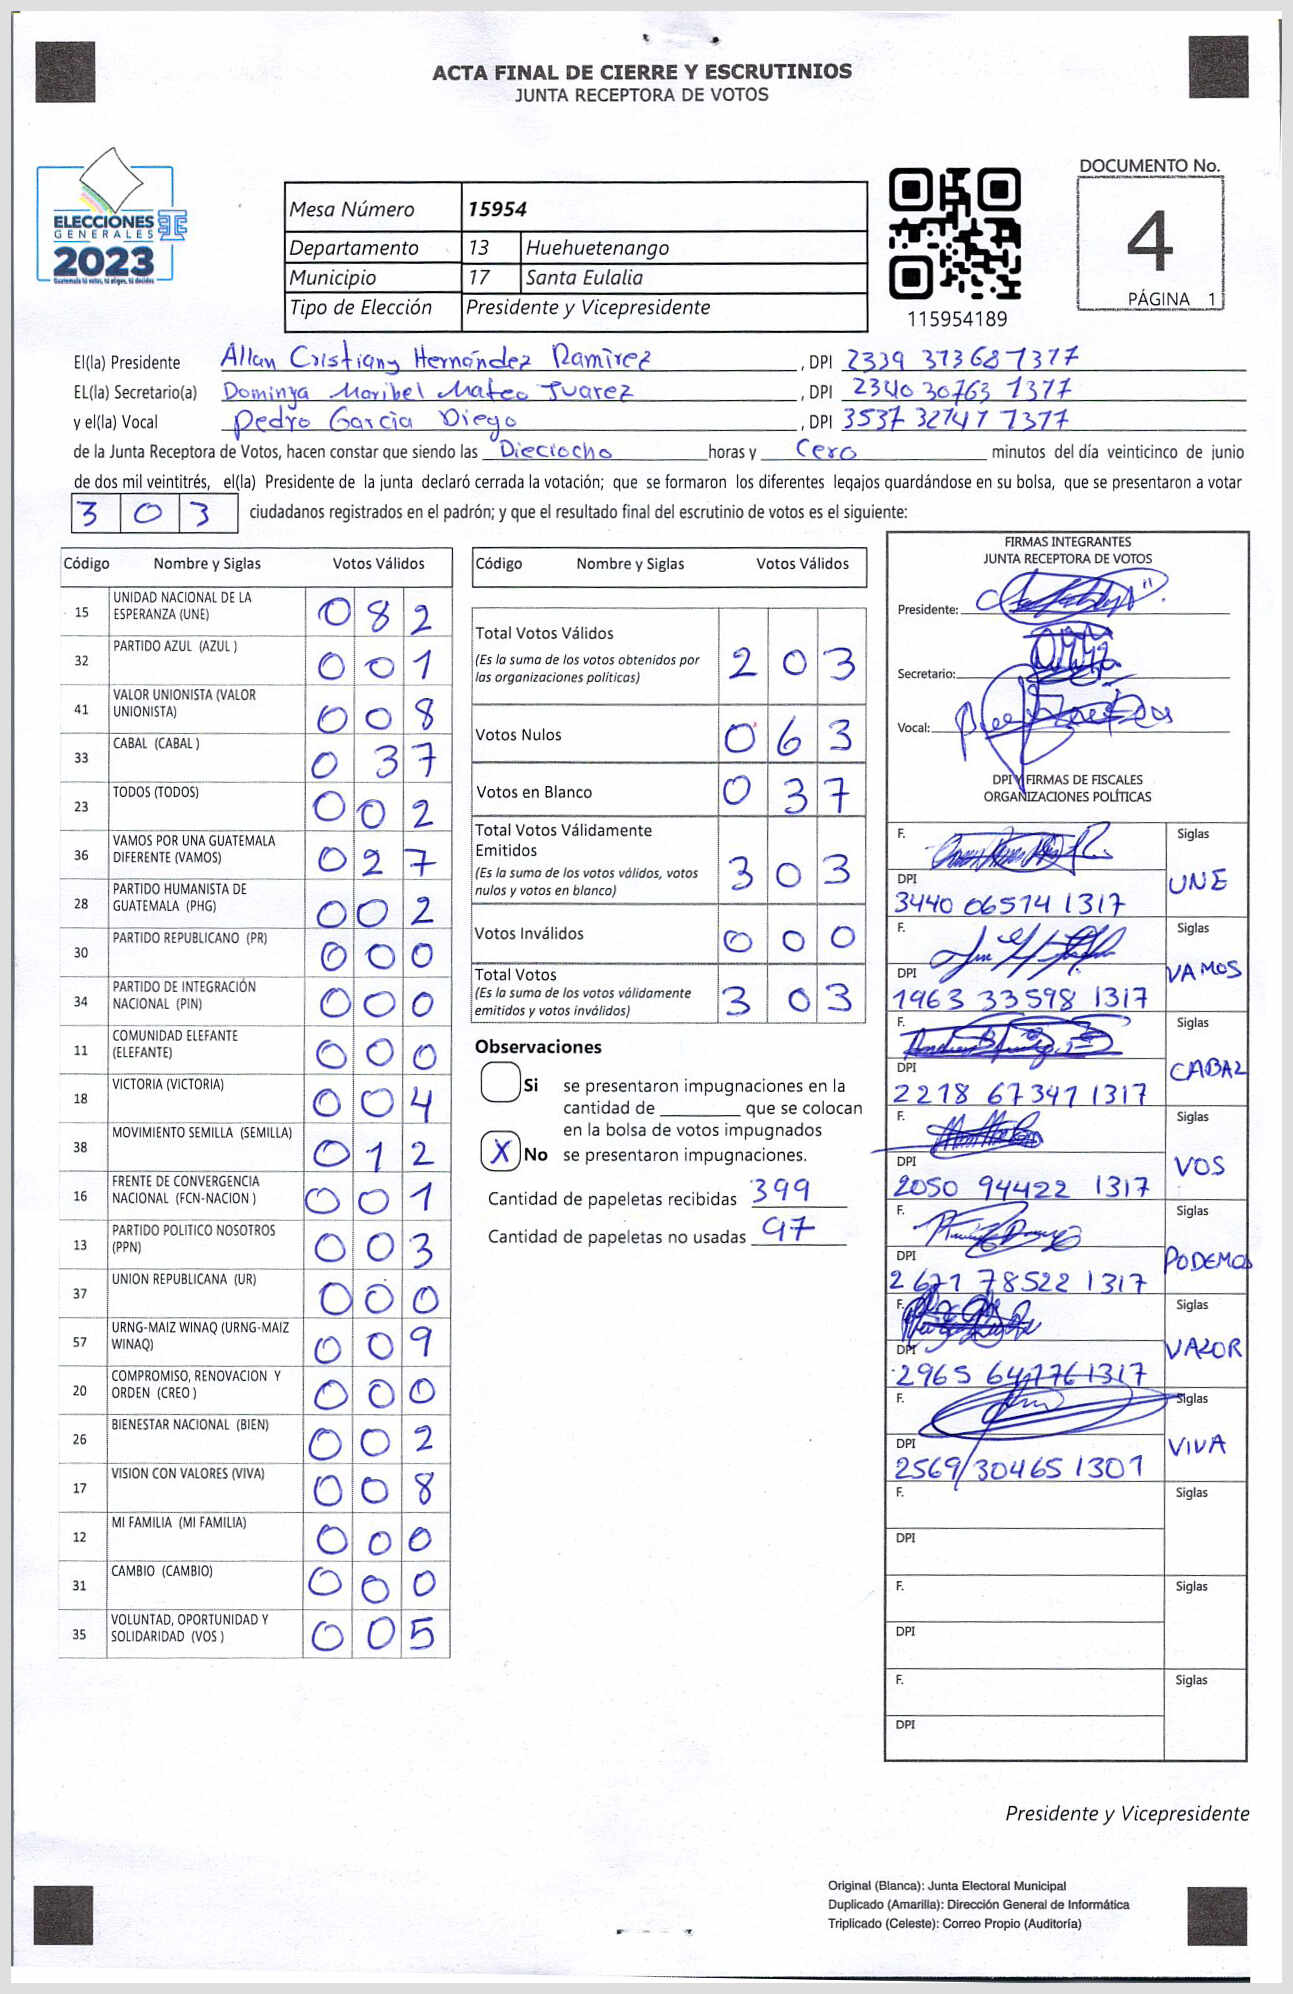 ACTA FINAL DE CIERRE Y ESCRUTINIOS
JUNTA RECEPTORA DE VOTOS
ELECCIONES
GENERALES
2023
Guatemala tú votas, tú eliges, tú decides
Mesa Número 15954
Departamento 13 Huehuetenango
Municipio 17 Santa Eulalia
Tipo de Elección Presidente y Vicepresidente
115954189
DOCUMENTO No.
4
PÁGINA 1
El(la) Presidente Allan Cristiany Hernández Ramírez , DPI 2339 37368 1377
EL(la) Secretario(a) Dominga Maribel Mateo Juarez , DPI 2340 30763 1377
y el(la) Vocal Pedro Garcia Diego , DPI 3537 32747 1377
de la Junta Receptora de Votos, hacen constar que siendo las Dieciocho horas y Cero minutos del día veinticinco de junio
de dos mil veintitrés, el(la) Presidente de la junta declaró cerrada la votación; que se formaron los diferentes legajos quardándose en su bolsa, que se presentaron a votar
3 0 3 ciudadanos registrados en el padrón; y que el resultado final del escrutinio de votos es el siguiente:
Código Nombre y Siglas Votos Válidos
15 UNIDAD NACIONAL DE LA ESPERANZA (UNE) 0 8 2
32 PARTIDO AZUL (AZUL ) 0 0 1
41 VALOR UNIONISTA (VALOR UNIONISTA) 0 0 8
33 CABAL (CABAL ) 0 3 7
23 TODOS (TODOS) 0 0 2
36 VAMOS POR UNA GUATEMALA DIFERENTE (VAMOS) 0 2 7
28 PARTIDO HUMANISTA DE GUATEMALA (PHG) 0 0 2
30 PARTIDO REPUBLICANO (PR) 0 0 0
34 PARTIDO DE INTEGRACIÓN NACIONAL (PIN) 0 0 0
11 COMUNIDAD ELEFANTE (ELEFANTE) 0 0 0
18 VICTORIA (VICTORIA) 0 0 4
38 MOVIMIENTO SEMILLA (SEMILLA) 0 1 2
16 FRENTE DE CONVERGENCIA NACIONAL (FCN-NACION ) 0 0 1
13 PARTIDO POLITICO NOSOTROS (PPN) 0 0 3
37 UNION REPUBLICANA (UR) 0 0 0
57 URNG-MAIZ WINAQ (URNG-MAIZ WINAQ) 0 0 9
20 COMPROMISO, RENOVACION Y ORDEN (CREO ) 0 0 0
26 BIENESTAR NACIONAL (BIEN) 0 0 2
17 VISION CON VALORES (VIVA) 0 0 8
12 MI FAMILIA (MI FAMILIA) 0 0 0
31 CAMBIO (CAMBIO) 0 0 0
35 VOLUNTAD, OPORTUNIDAD Y SOLIDARIDAD (VOS ) 0 0 5
Código Nombre y Siglas Votos Válidos
Total Votos Válidos 2 0 3
(Es la suma de los votos obtenidos por
las organizaciones politicas)
Votos Nulos 0 6 3
Votos en Blanco 0 3 7
Total Votos Válidamente
Emitidos 3 0 3
(Es la suma de los votos válidos, votos
nulos y votos en blanco)
Votos Inválidos 0 0 0
Total Votos 3 0 3
(Es la suma de los votos válidamente
emitidos y votos inválidos)
Observaciones
Si se presentaron impugnaciones en la
cantidad de ________ que se colocan
en la bolsa de votos impugnados
X No se presentaron impugnaciones.
Cantidad de papeletas recibidas 399
Cantidad de papeletas no usadas 97
FIRMAS INTEGRANTES
JUNTA RECEPTORA DE VOTOS
Presidente:
Secretario:
Vocal:
DPI Y FIRMAS DE FISCALES
ORGANIZACIONES POLÍTICAS
F. Siglas
DPI UNE
3440 06574 1317
F. Siglas
DPI VAMOS
1963 33598 1317
F. Siglas
DPI CABAL
2218 67347 1317
F. Siglas
DPI VOS
2050 94422 1317
F. Siglas
DPI PODEMOS
2671 78522 1317
F. Siglas
DPI VALOR
2965 64776 1317
F. Siglas
DPI VIVA
2569 30465 1301
F. Siglas
DPI
F. Siglas
DPI
F. Siglas
DPI
Presidente y Vicepresidente
Original (Blanca): Junta Electoral Municipal
Duplicado (Amarilla): Dirección General de Informática
Triplicado (Celeste): Correo Propio (Auditoría)